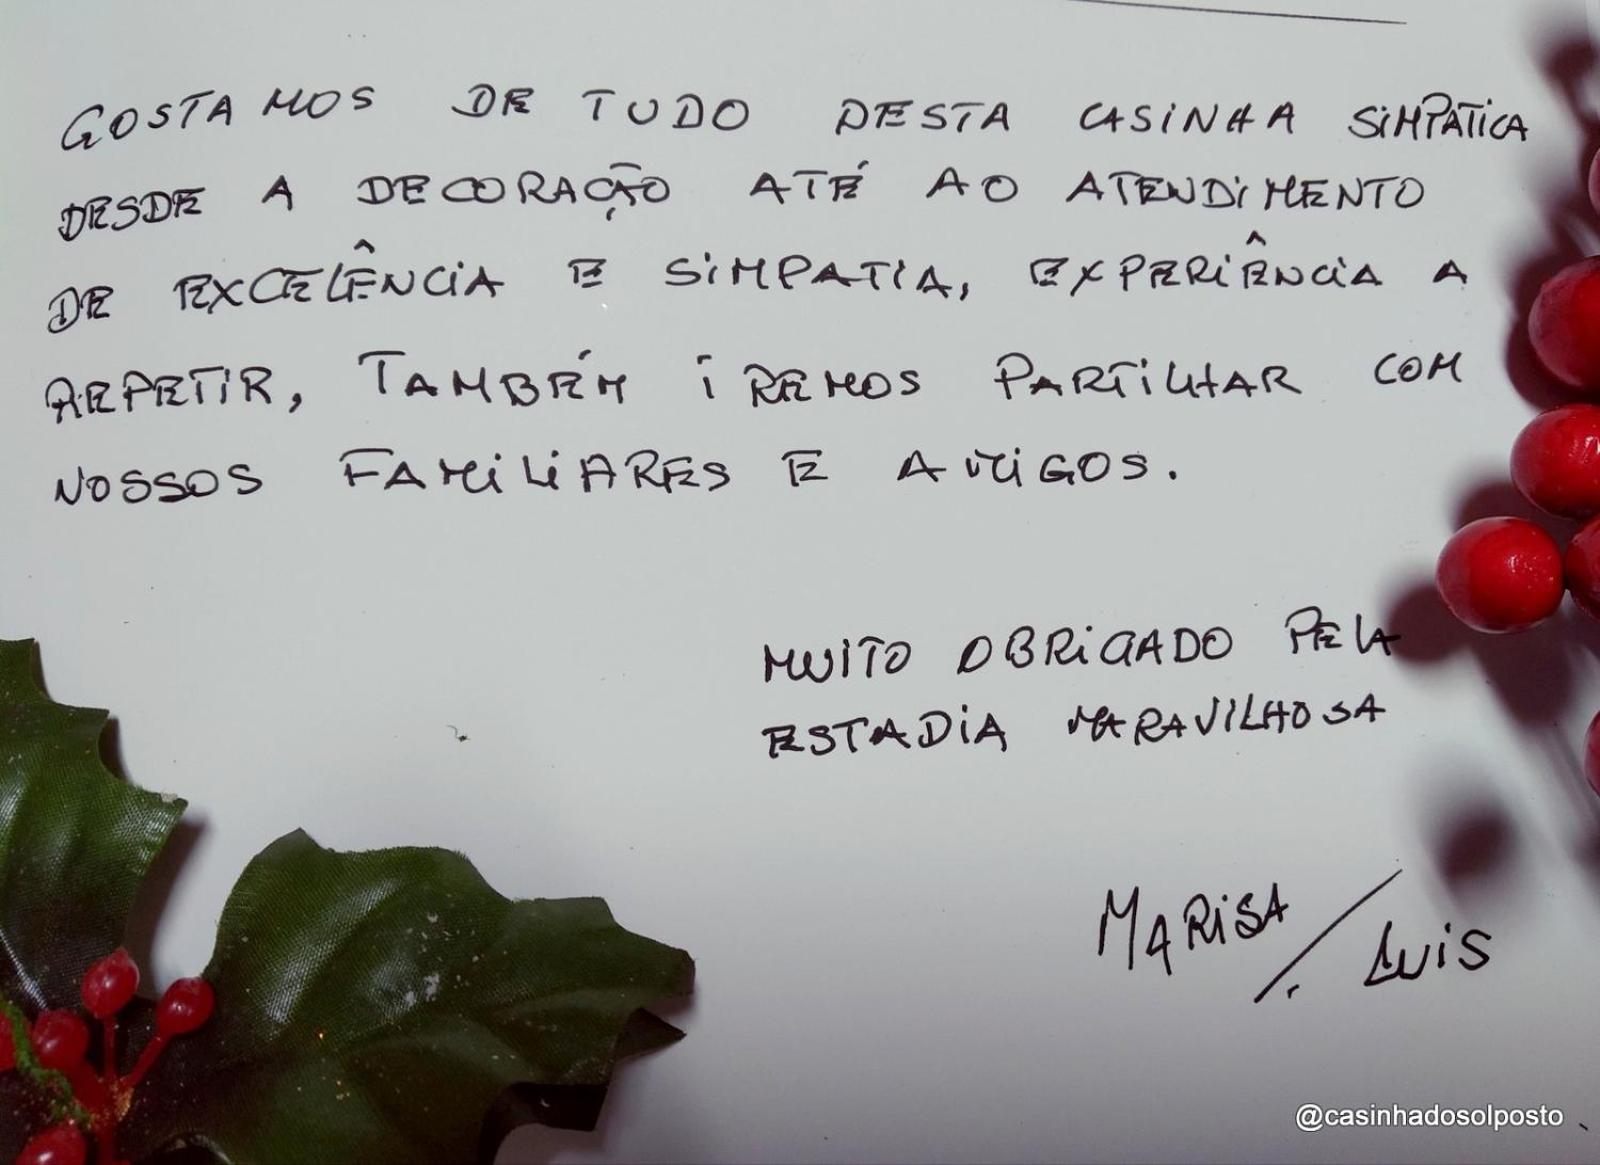 GOSTAMOS DE TUDO DESTA CASINHA SIMPÁTICA
DESDE A DECORAÇÃO ATÉ AO ATENDIMENTO
DE EXCELÊNCIA E SIMPATIA, EXPERIÊNCIA A
REPETIR, TAMBÉM IREMOS PARTILHAR COM
NOSSOS FAMILIARES E AMIGOS.
MUITO OBRIGADO PELA
ESTADIA MARAVILHOSA
MARISA / LUIS
@casinhadosolposto